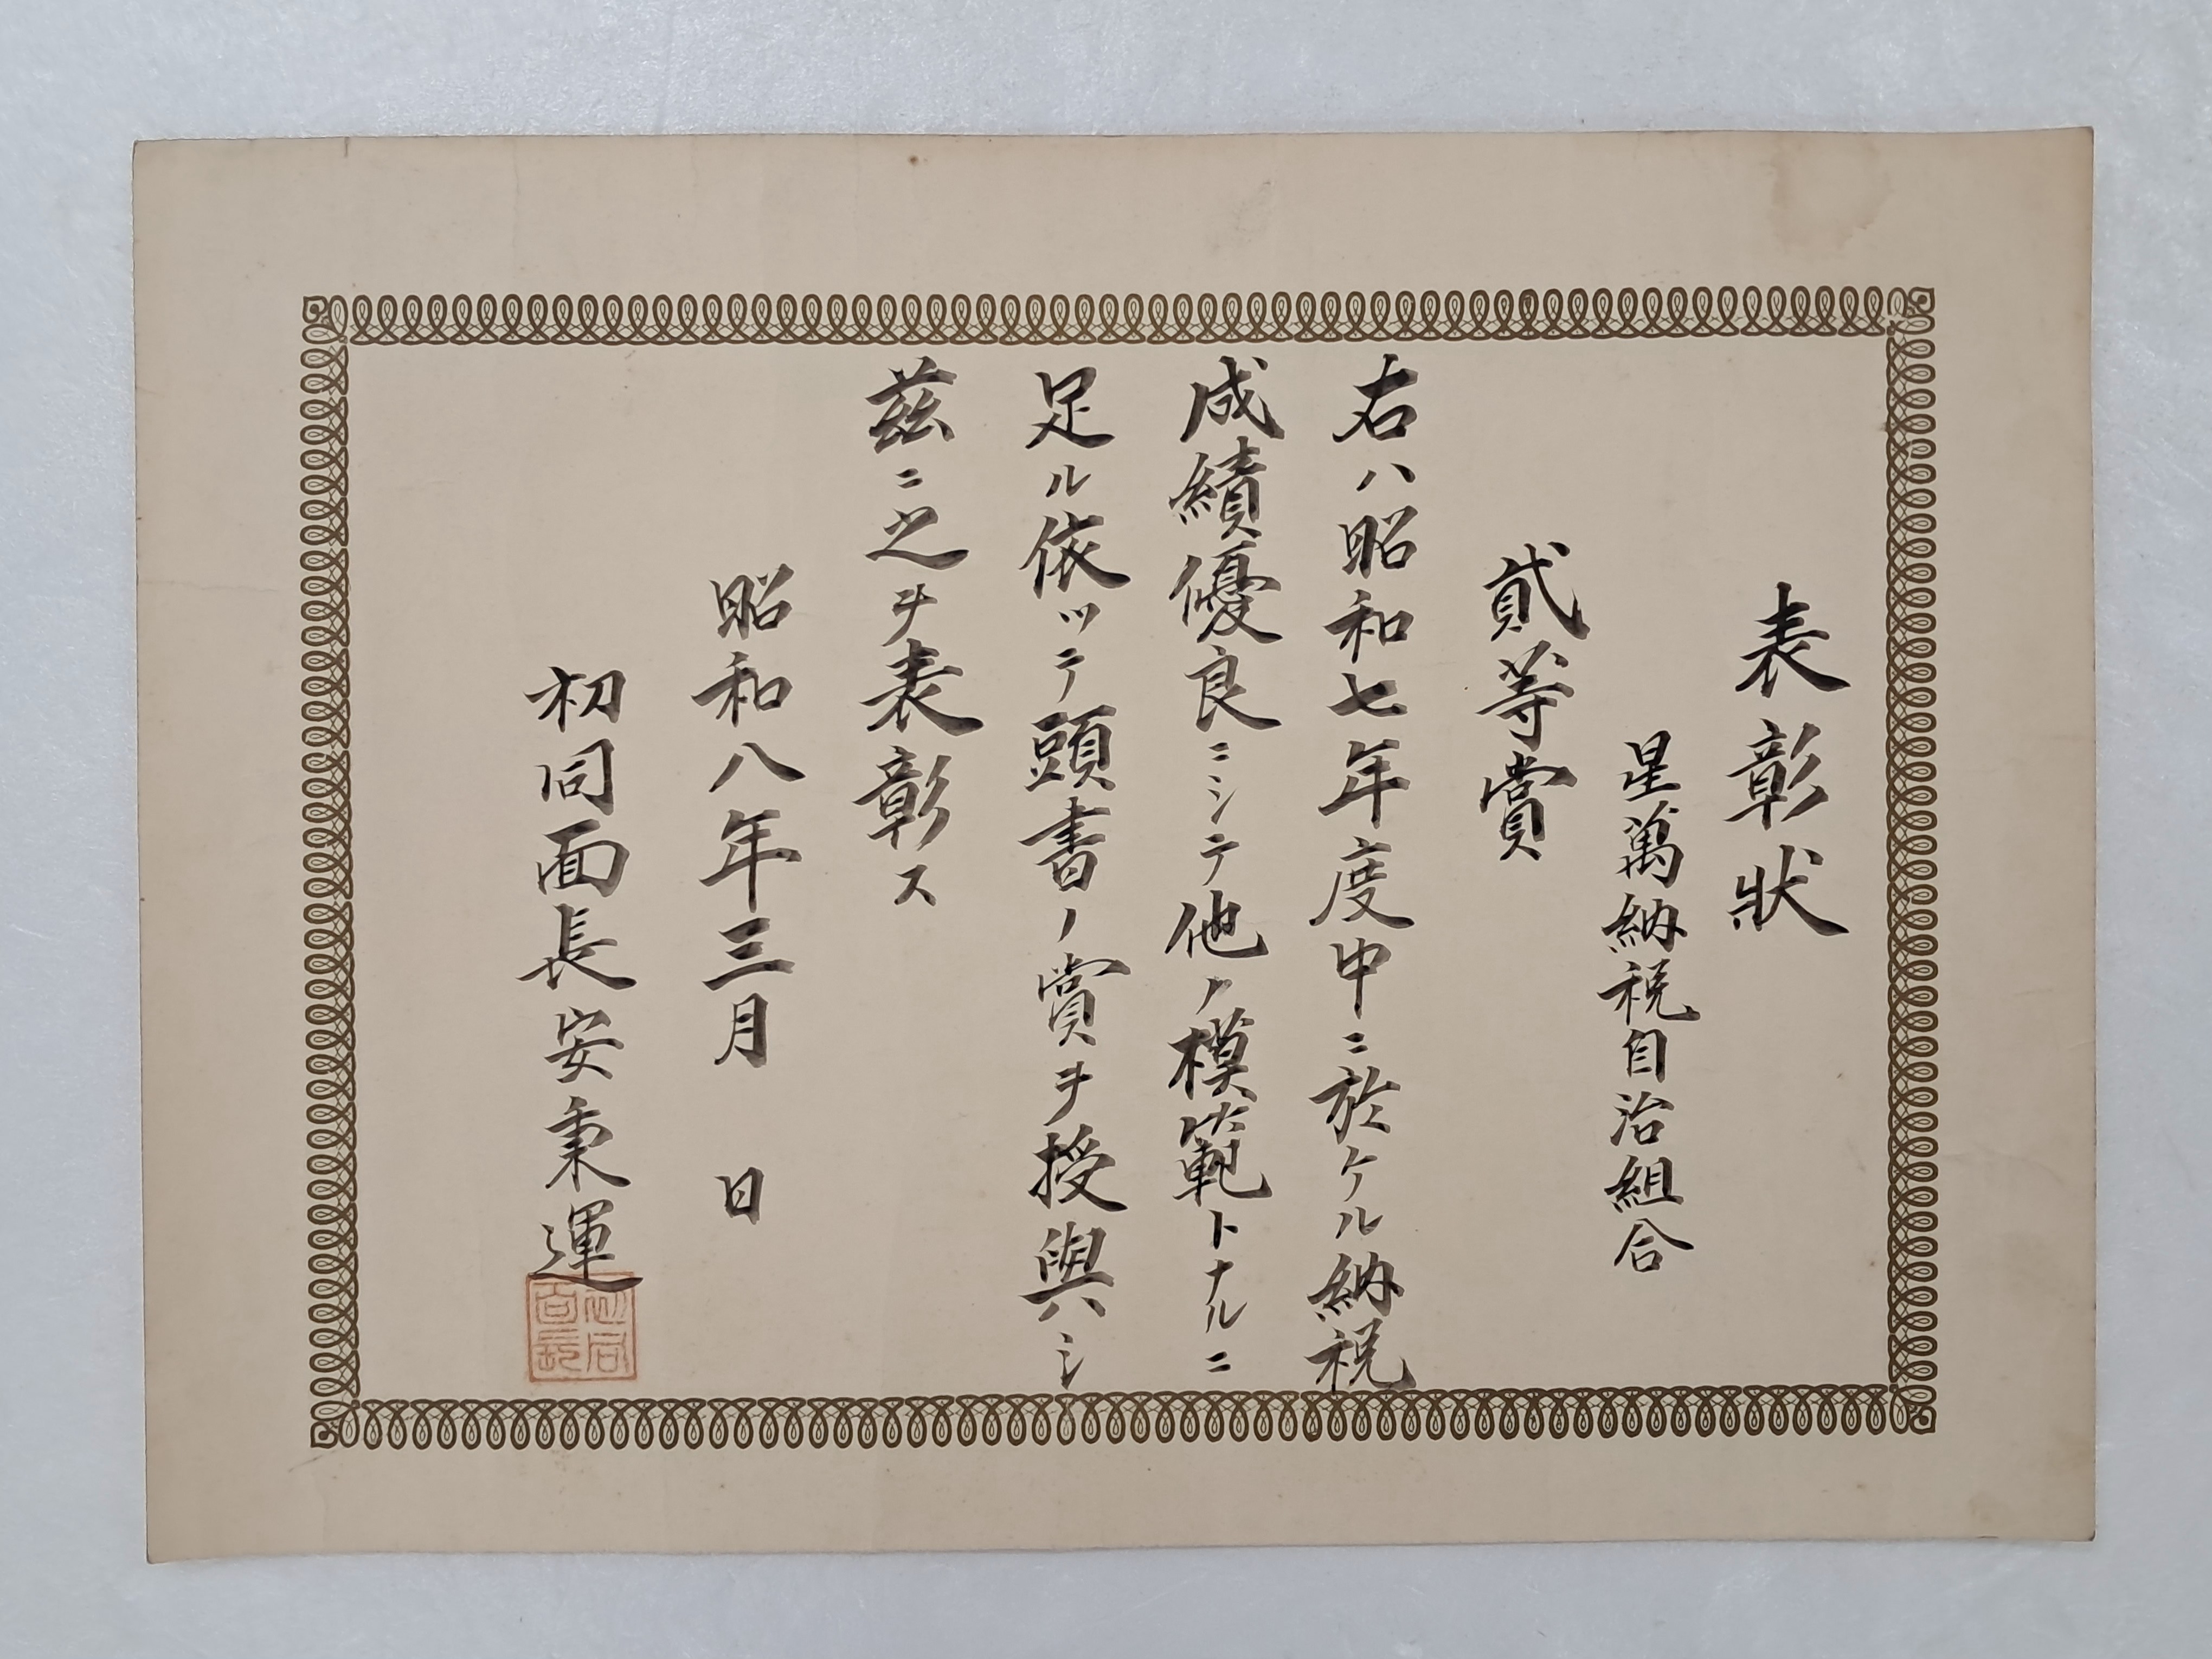 表彰狀
星萬納税自治組合
貳等賞
右ハ昭和七年度中ニ於ケル納税
成績優良ニシテ他ノ模範トナルニ
足ル依ッテ頭書ノ賞ヲ授與シ
茲ニ之ヲ表彰ス
昭和八年三月　日
初同面長安秉運